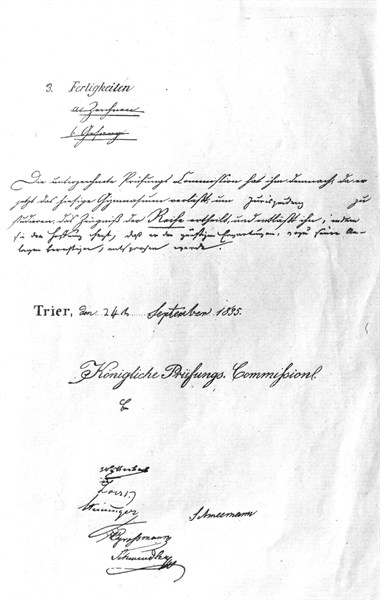 3. Fertigkeiten
a. Zeichnen
b. Gesang
Die unterzeichnete Prüfungs Commission hat ihm demnach, da er
jetzt das hiesige Gymnasium verläßt, um Jurisprudenz zu
studieren, das Zeugniß der Reife ertheilt, und entläßt ihn, indem
sie die Hoffnung hegt, daß er den günstigen Erwartungen, wozu seine An-
lagen berechtigen, entsprechen werde.
Trier, den 24ten September 1895.
Königliche Prüfungs-Commission.
Schneemann